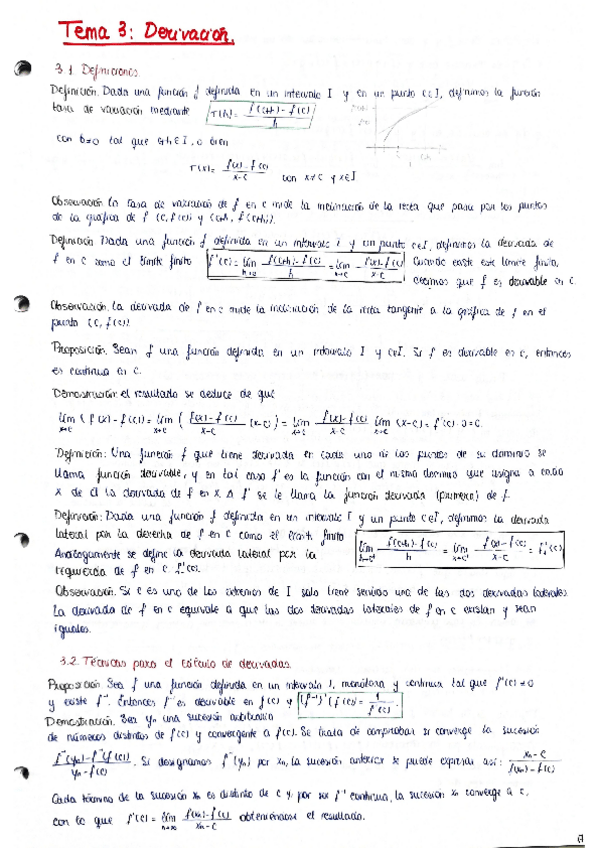 Tema 3: Derivación.
3.1. Definiciones.
Definición. Dada una función f definida en un intervalo I y en un punto c∈I, definimos la función
tasa de variación mediante T(h)= f(c+h)-f(c) / h
con h≠0 tal que c+h∈I, o bien
T(x)= f(x)-f(c) / x-c con x≠c y x∈I
Observación La tasa de variación de f en c mide la inclinación de la recta que pasa por los puntos
de la gráfica de f (c, f(c)) y (c+h, f(c+h)).
Definición Dada una función f definida en un intervalo I y un punto c∈I, definimos la derivada de
f en c como el límite finito f'(c)= lím h→0 f(c+h)-f(c) / h = lím x→c f(x)-f(c) / x-c Cuando existe este límite finito,
decimos que f es derivable en c.
Observación. La derivada de f en c mide la inclinación de la recta tangente a la gráfica de f en el
punto (c, f(c)).
Proposición. Sean f una función definida en un intervalo I y c∈I. Si f es derivable en c, entonces
es continua en c.
Demostración el resultado se deduce de que
lím x→c (f(x)-f(c)) = lím x→c ( f(x)-f(c) / x-c (x-c)) = lím x→c f(x)-f(c) / x-c lím x→c (x-c) = f'(c)·0=0.
Definición: Una función f que tiene derivada en cada uno de los puntos de su dominio se
llama función derivable, y en tal caso f' es la función con el mismo dominio que asigna a cada
x de él la derivada de f en x. A f' se le llama la función derivada (primera) de f.
Definición: Dada una función f definida en un intervalo I y un punto c∈I, definimos la derivada
lateral por la derecha de f en c como el límite finito lím h→0⁺ f(c+h)-f(c) / h = lím x→c⁺ f(x)-f(c) / x-c = f'₊(c).
Análogamente se define la derivada lateral por la
izquierda de f en c. f'₋(c).
Observación. Si c es uno de los extremos de I solo tiene sentido una de las dos derivadas laterales.
La derivada de f en c equivale a que las dos derivadas laterales de f en c existan y sean
iguales.
3.2. Técnicas para el cálculo de derivadas.
Proposición Sea f una función definida en un intervalo I, monótona y continua tal que f'(c)≠0
y existe f⁻¹. Entonces f⁻¹ es derivable en f(c) y (f⁻¹)'(f(c))= 1 / f'(c).
Demostración. Sea yn una sucesión arbitraria
de números distintos de f(c) y convergente a f(c). Se trata de comprobar si converge la sucesión
f⁻¹(yn)-f⁻¹(f(c)) / yn-f(c). Si designamos f⁻¹(yn) por xn, la sucesión anterior se puede expresar así: xn-c / f(xn)-f(c)
Cada término de la sucesión xn es distinto de c y por ser f⁻¹ continua, la sucesión xn converge a c,
con lo que f'(c)= lím n→∞ f(xn)-f(c) / xn-c obteniéndose el resultado.